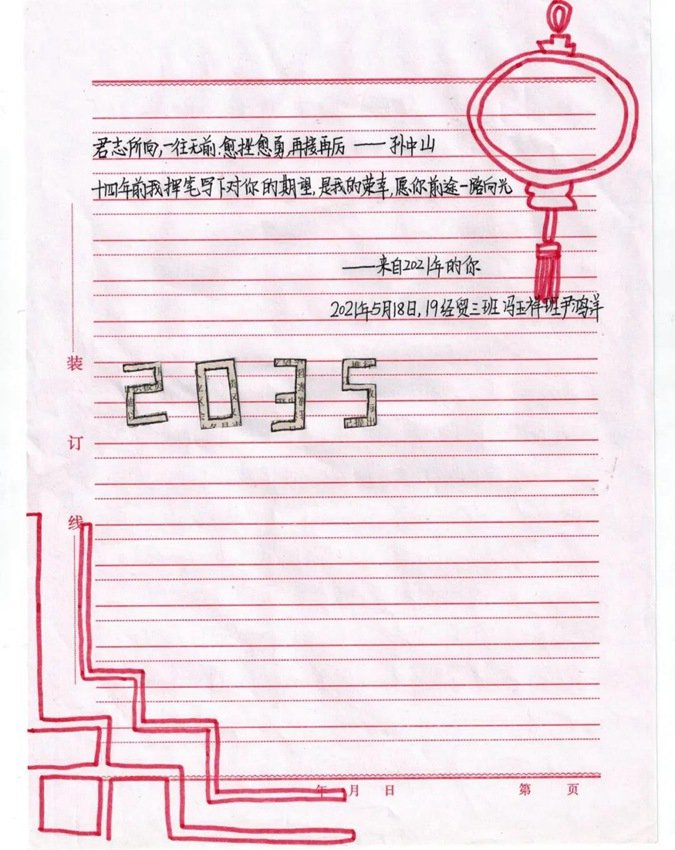 君志所向,一往无前.愈挫愈勇,再接再厉 —— 孙中山
十四年前我挥笔写下对你的期望,是我的荣幸,愿你前途一路向光
——来自2021年的你
2021年5月18日,19经贸三班 冯玉祥班尹鸿洋
装
2035
订
线
年 月 日 第 页